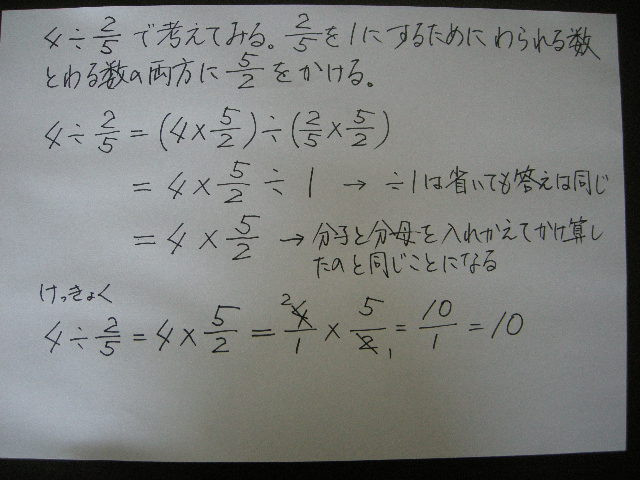 4÷2/5で考えてみる。2/5を1にするためにわられる数
とわる数の両方に5/2をかける。
4÷2/5=(4×5/2)÷(2/5×5/2)
=4×5/2÷1 → ÷1は省いても答えは同じ
=4×5/2 → 分子と分母を入れかえてかけ算し
たのと同じことになる
けっきょく
4÷2/5=4×5/2=2 4/1×5/2 1=10/1=10